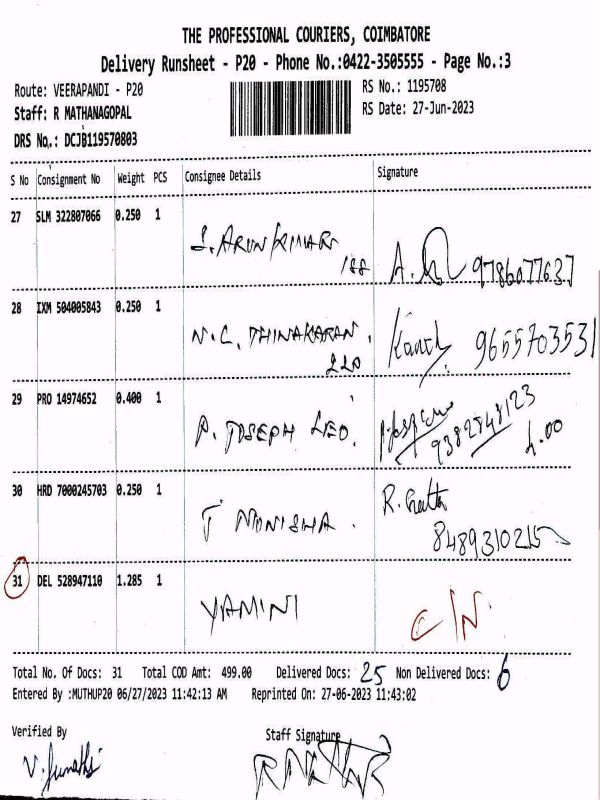 THE PROFESSIONAL COURIERS, COIMBATORE
Delivery Runsheet - P20 - Phone No.:0422-3505555 - Page No.:3
Route: VEERAPANDI - P20 RS No.: 1195708
Staff: R MATHANAGOPAL RS Date: 27-Jun-2023
DRS No.: DCJB119570803
S No Consignment No Weight PCS Consignee Details Signature
27 SLM 322807066 0.250 1
J. ARUN KUMAR
188 9786077637
28 IXM 504005843 0.250 1
N.C. DHINAKARAN. 9655703531
220
29 PRO 14974652 0.400 1
P. JOSEPH LEO. 9382848123
4.00
30 HRD 7000245703 0.250 1
T MONISHA. 8489310215
31 DEL 528947110 1.285 1
YAMINI C/N.
Total No. Of Docs: 31 Total COD Amt: 499.00 Delivered Docs: 25 Non Delivered Docs: 6
Entered By :MUTHUP20 06/27/2023 11:42:13 AM Reprinted On: 27-06-2023 11:43:02
Verified By Staff Signature